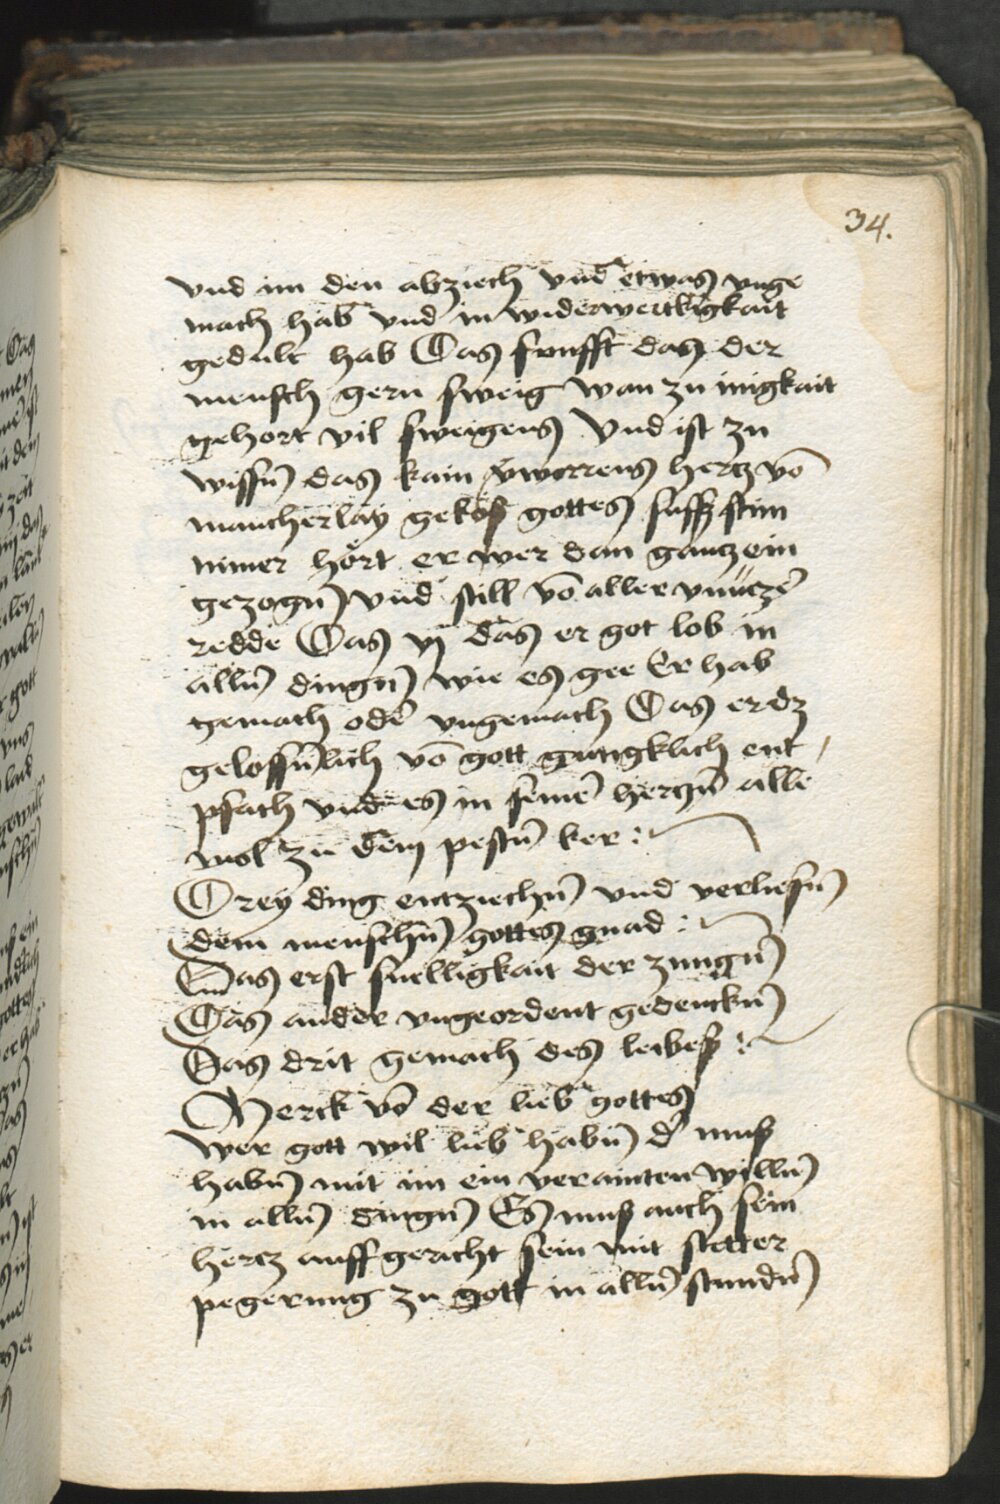 34.
vnd im den abziech vnd etwas vnge
mach hab vnd in widerwertikigkait
gedult hab Das funfft das der
mensch gern sweig wan zu inigkait
gehort vil sweigens Vnd ist zu
wissn̄ das kain v̄worrens hertz vō
mancherlay gekoß gottes suss stim
nimer hort er wer dan gantz ein
gezogn̄ vnd still vō aller vnnutzē
redde Das vj das er got lob in
alln̄ dingn̄ wie es gee Er hab
gemach odē vngemach Das er dz
gelossn̄lich vō gott gutigklich ent
pfach vnd es in seinē hertzn̄ alle
mol zu dem pestn̄ ker :
Drey ding entziechn̄ vnd verliesn̄
dem menschn̄ gottes gnad :
Das erst snelligkait der zungn̄
Das ander vngeordent gedenckn̄
Das drit gemach des leibeß :
Merck vō der lieb gottes
Wer gott wil lieb habn̄ d̄ muß
habn̄ mit im ein verainten willn̄
in alln̄ dingn̄ Es muß auch sein
hertz auff gericht sein mit stetter
pegerung zu gott in alln̄ stundn̄